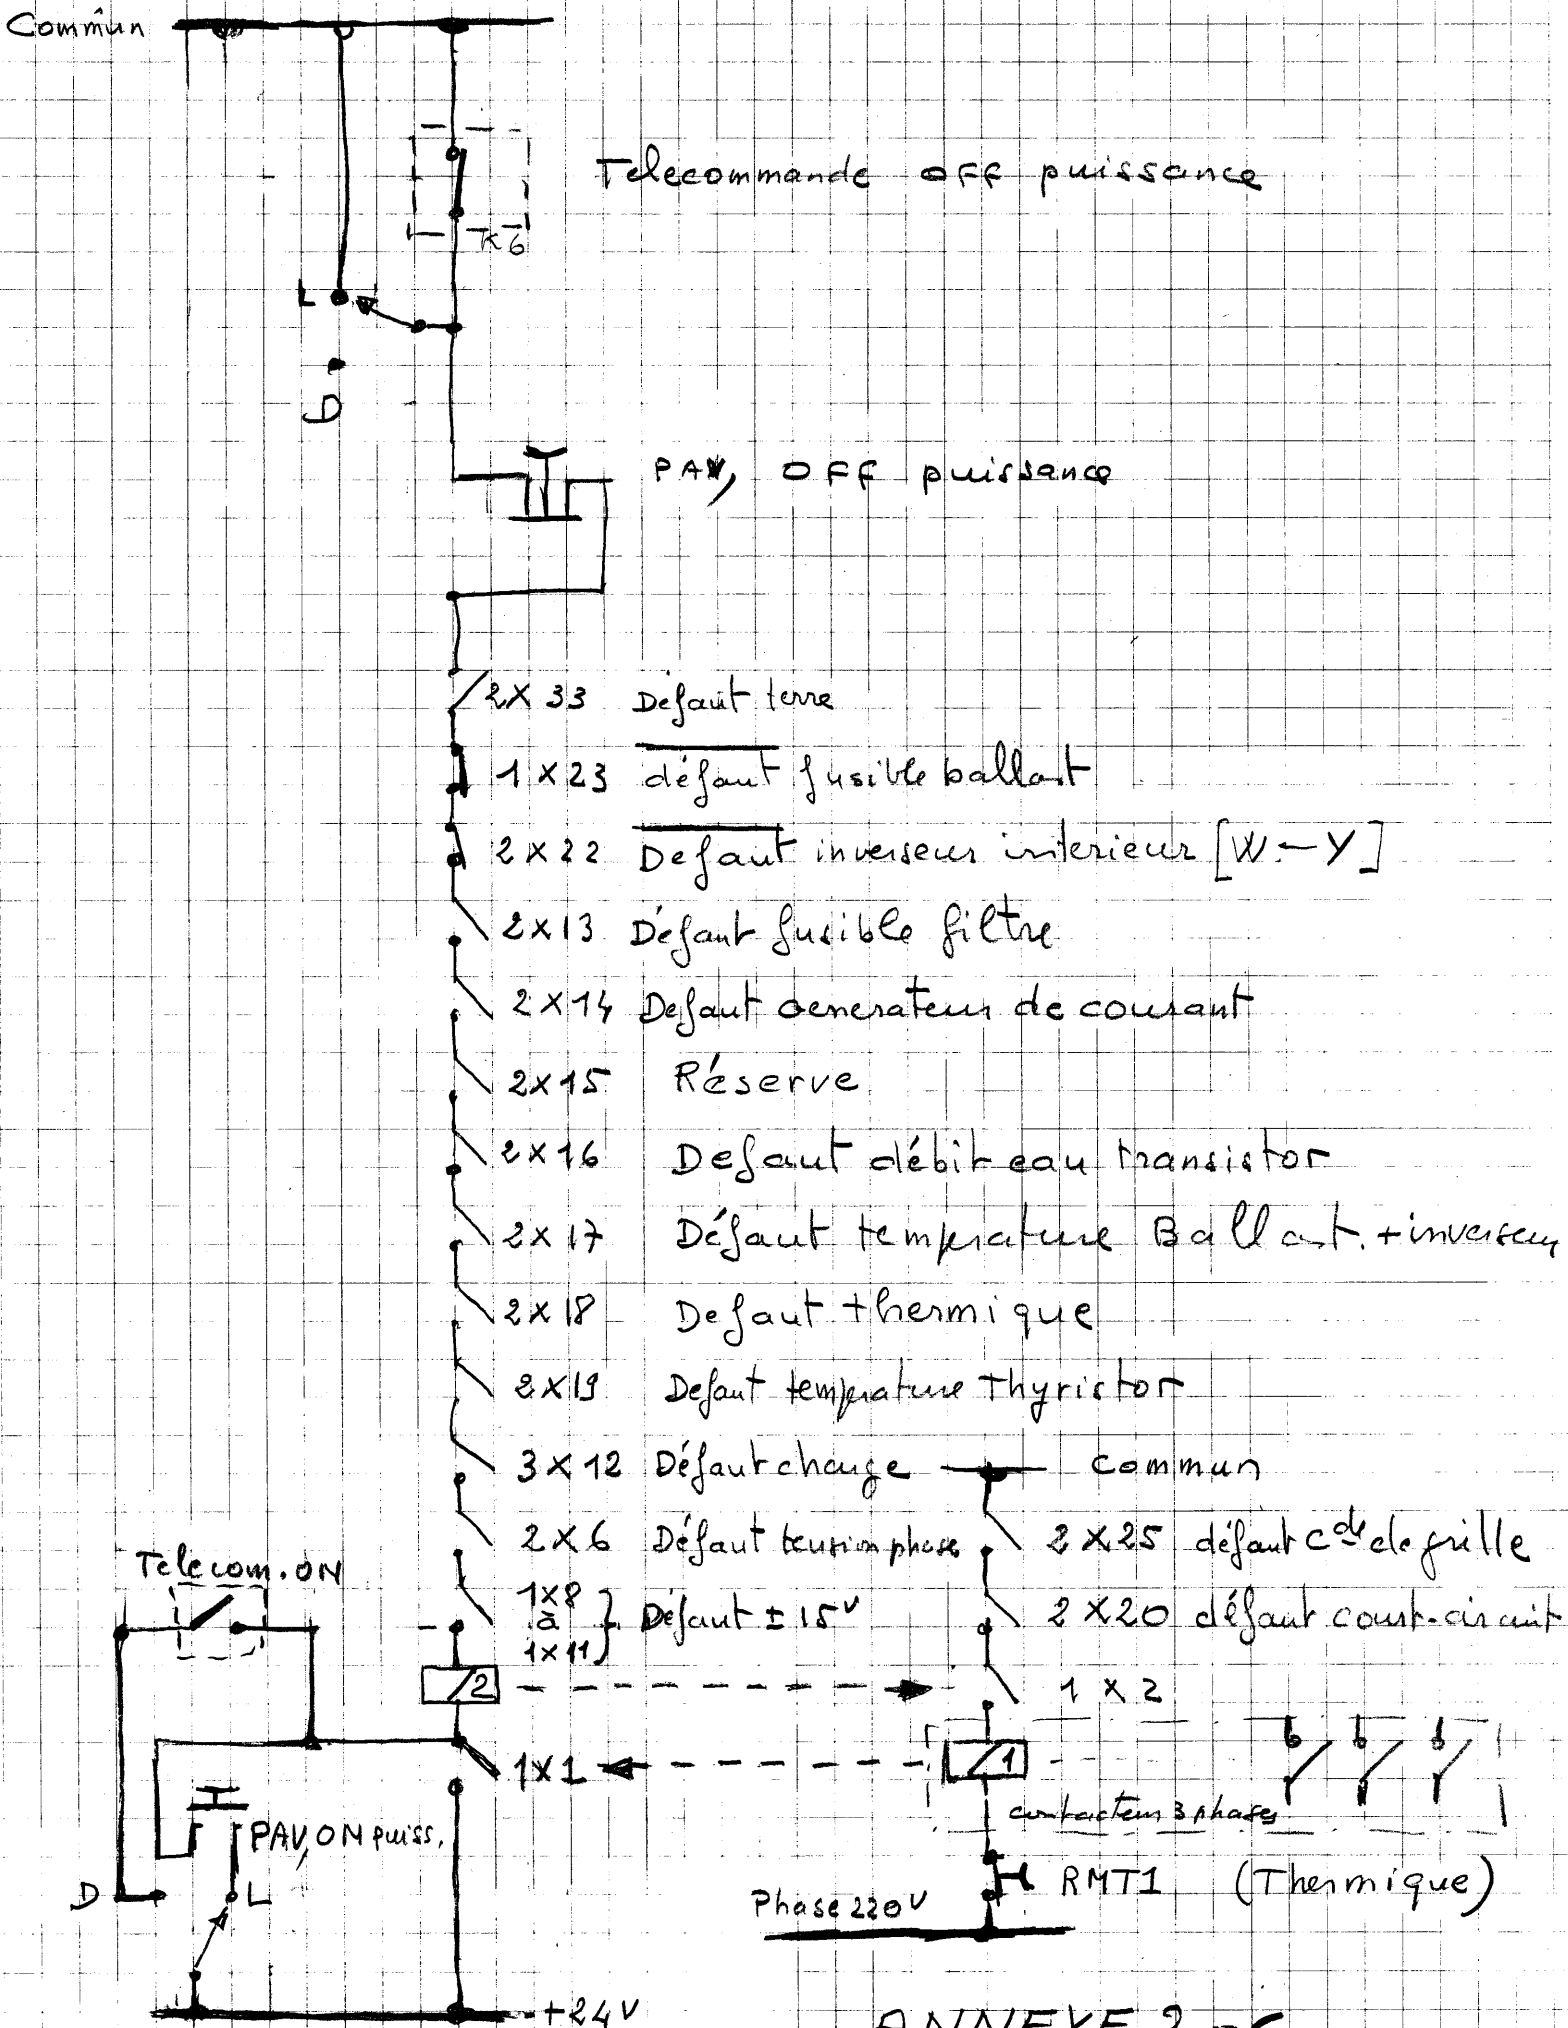 Commun
Telecommande OFF puissance
K6
L
D
PAV, OFF puissance
2X33 Défaut terre
1X23 défaut fusible ballast
2X22 Defaut inverseur interieur [W-Y]
2X13 Défaut fusible filtre
2X14 Defaut Generateur de courant
2X15 Réserve
2X16 Defaut débit eau transistor
2X17 Défaut temperature Ballast + inverseur
2X18 Defaut thermique
2X19 Defaut temperature Thyristor
3X12 Défaut charge
commun
2X6 Défaut tension phase
2X25 défaut Cde de grille
Telecom. ON
1X8
à
1X11 } Défaut ± 15V
2X20 défaut court-circuit
/2
1X2
1X1
/1
contacteur 3 phases
PAV, ON puiss.
D
L
RMT1 (Thermique)
Phase 220V
+24V
ANNEXE 2